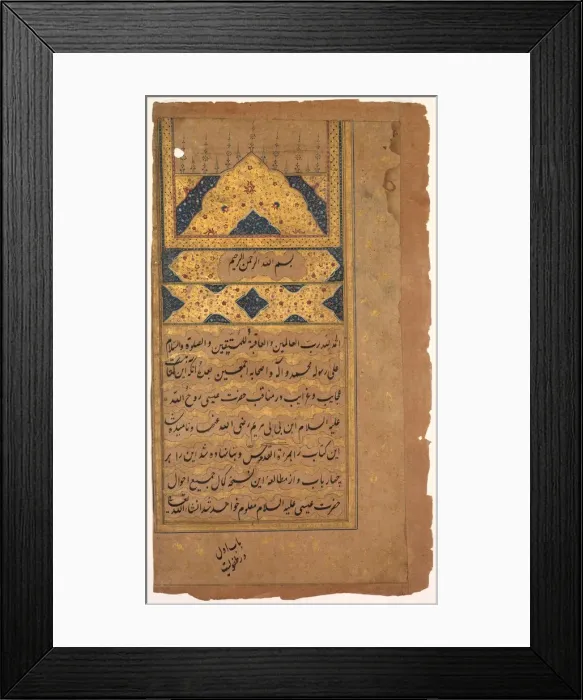 بسم الله الرحمن الرحیم
الحمد لله رب العالمین والعاقبة للمتقین والصلوة والسلام
علی رسوله محمد وآله واصحابه اجمعین بعده آنکه این
عجایب وغرایب در مناقب حضرت عیسی روح الله
علیه السلام ابن بی بی مریم رضی الله عنها
این کتاب را مرآة القدوس و بنا نهاده شد این را بر
چهار باب و از مطالعه این نسخه کمال جمیع احوال
حضرت عیسی علیه السلام معلوم خواهد شد انشاءالله تعالی
باب اول
در طفولیت